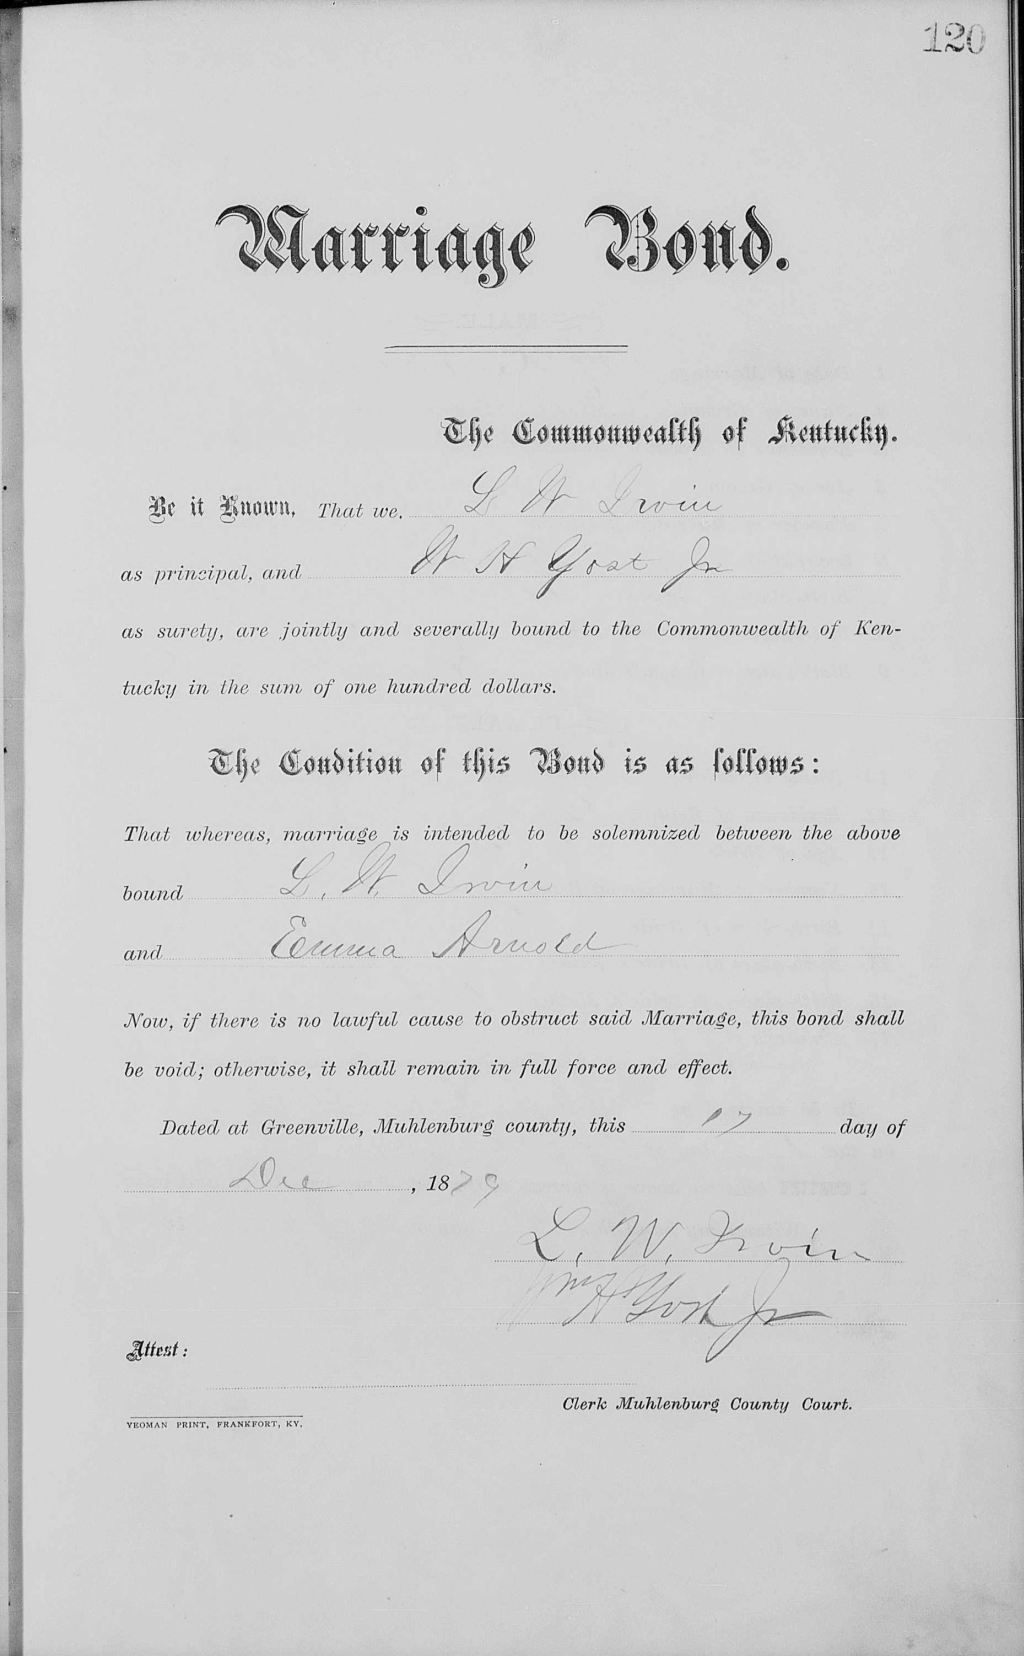 120
Marriage Bond.
The Commonwealth of Kentucky.
Be it Known, That we, L W Irvin
as principal, and W H Yost Jr
as surety, are jointly and severally bound to the Commonwealth of Ken-
tucky in the sum of one hundred dollars.
The Condition of this Bond is as follows:
That whereas, marriage is intended to be solemnized between the above
bound L. W. Irvin
and Emma Arnold
Now, if there is no lawful cause to obstruct said Marriage, this bond shall
be void; otherwise, it shall remain in full force and effect.
Dated at Greenville, Muhlenburg county, this 17 day of
Dec, 1879
L. W. Irvin
Wm H Yost Jr
Attest:
Clerk Muhlenburg County Court.
YEOMAN PRINT, FRANKFORT, KY.